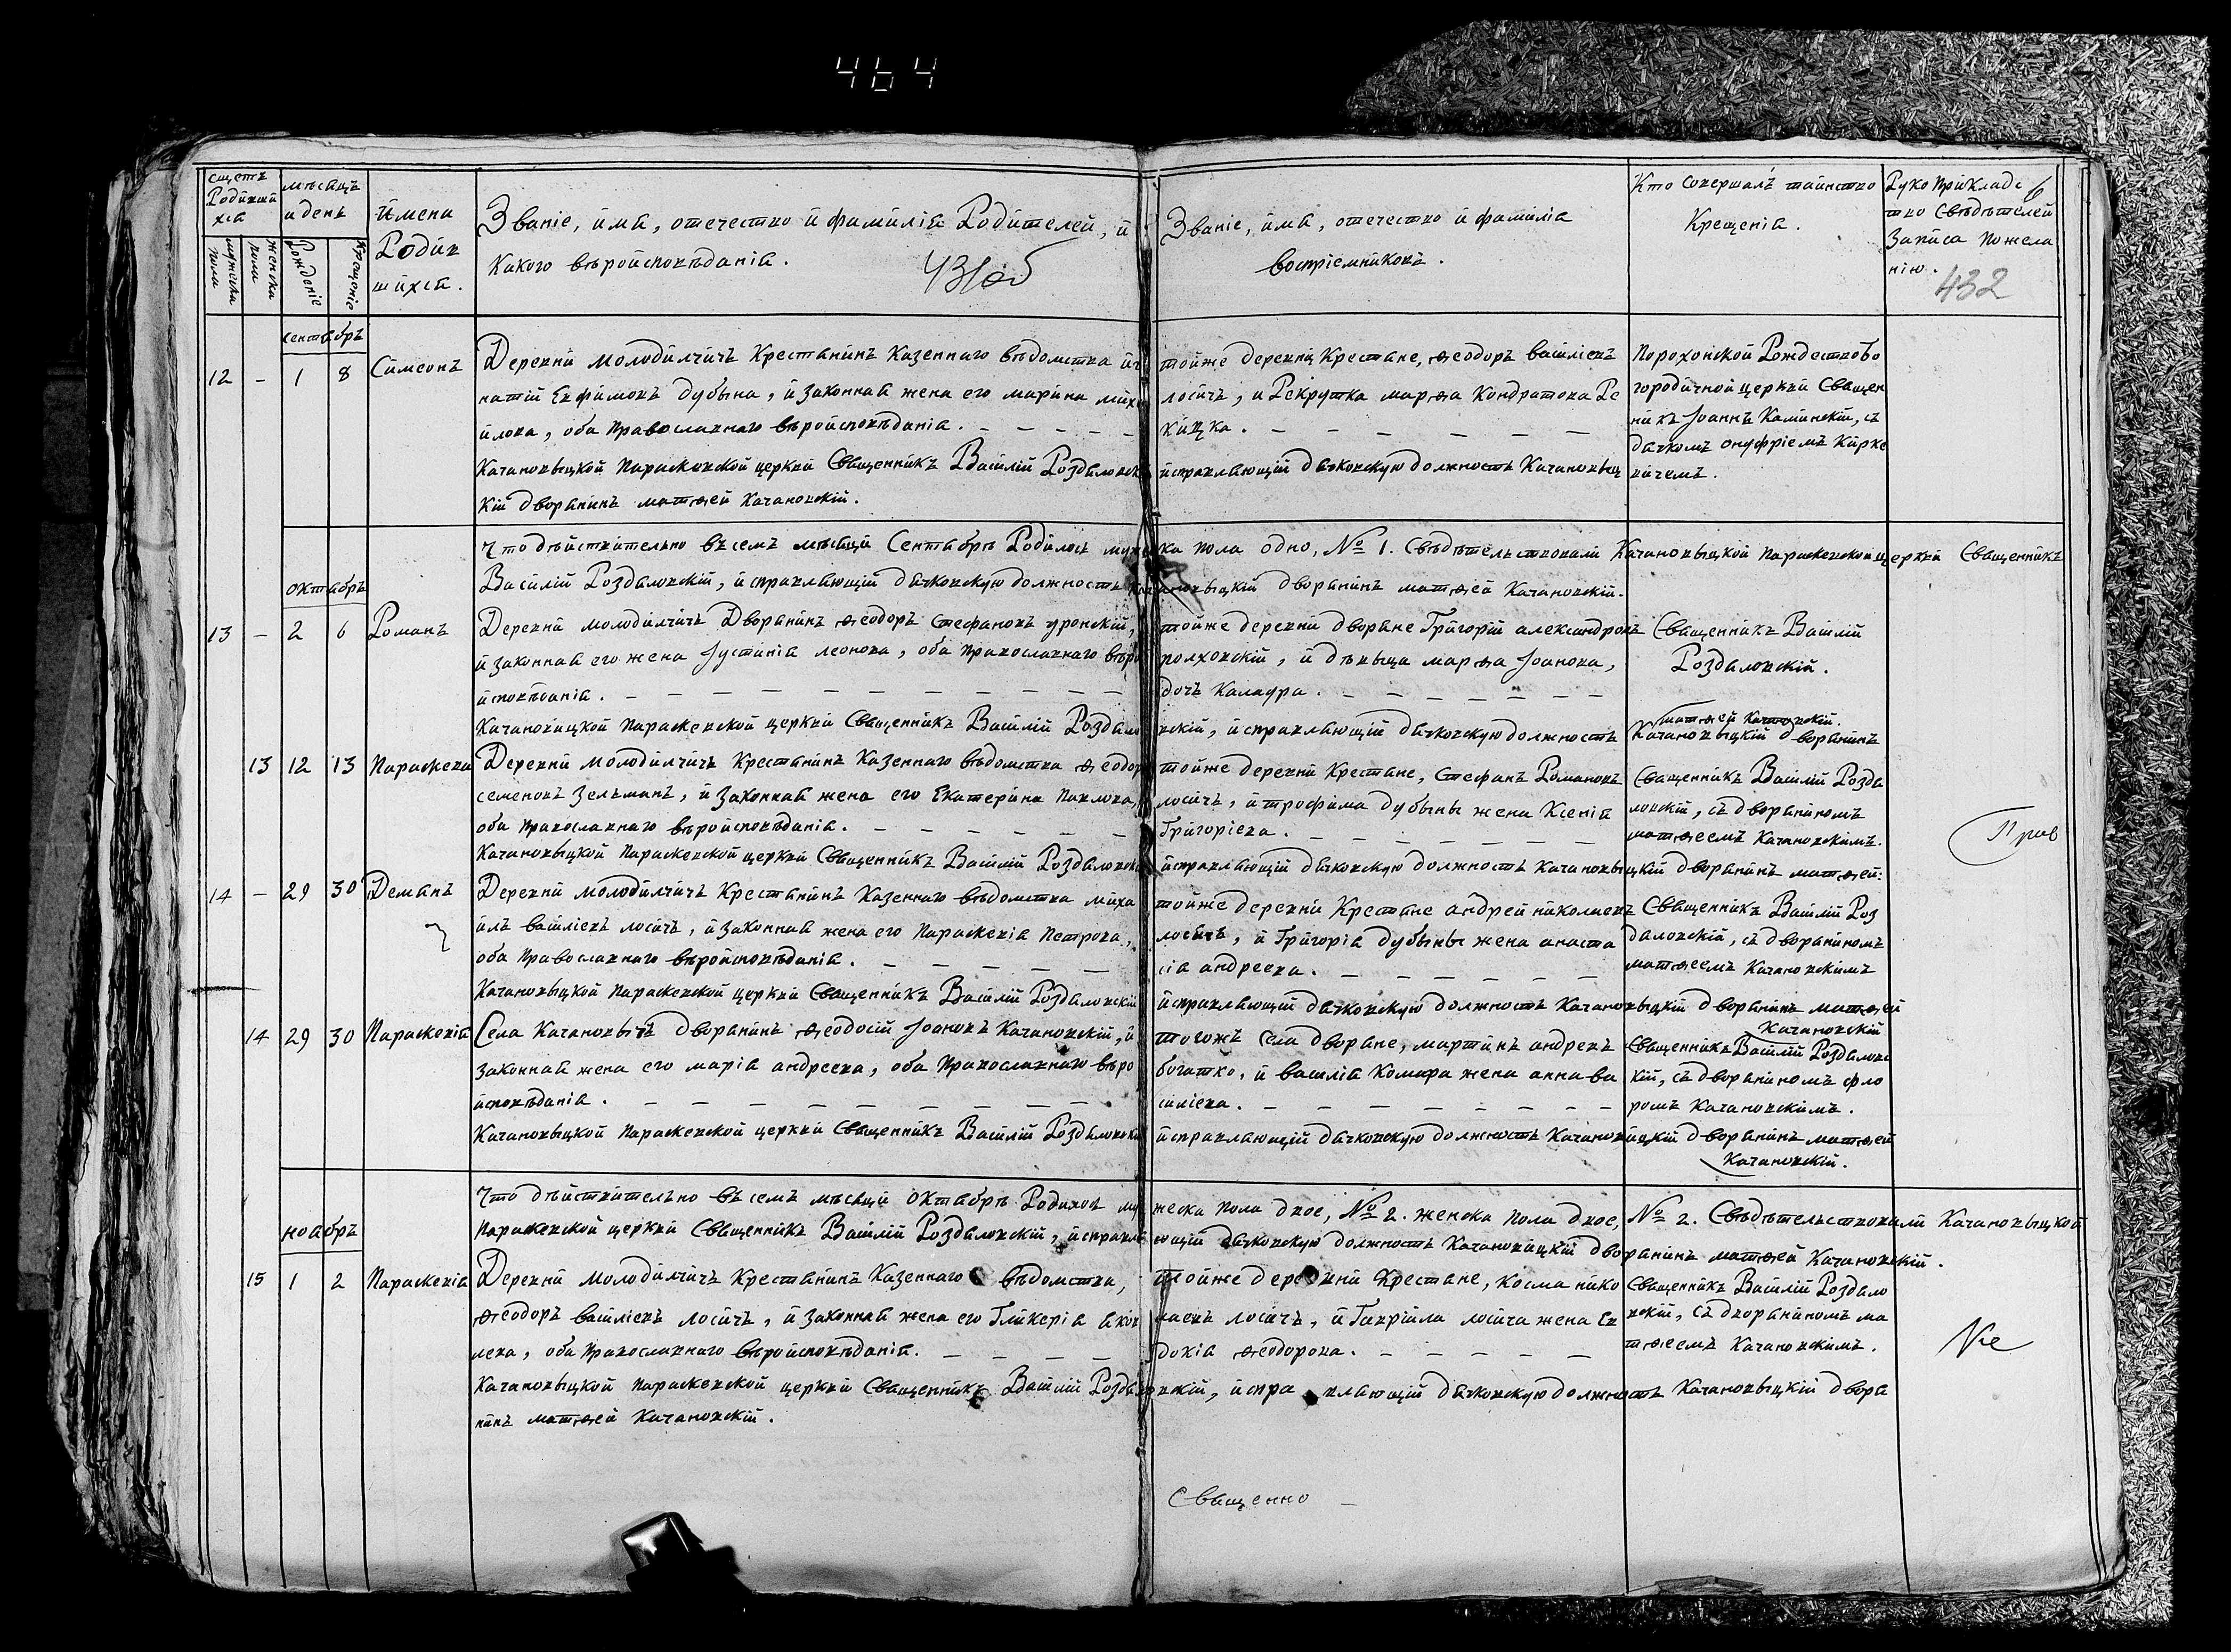 464
счетъ
Родивши
хса
мужеска
пола
женска
пола
мѣсяцъ
и день
Рожденіе
Крещеніе
Имена
Родив
шихса.
Званіе, има, отечество и фамиліа Родителей, и
какого вѣроисповѣданіа.
431об
Званіе, има, отечество и фамиліа
воспріемниковъ.
Кто совершалъ таинство
Крещеніа.
Рукоприкладс
тво Свѣдѣтелей
Записа пожела
нію.
6
432
сентабръ
12 – 1 8 Симеонъ
Деревни Молодилчичъ Крестанинъ Казеннаго вѣдомства иг
натій Евфимовъ дубына, и законнаа жена его марина миха
илова, оба Православнаго вѣроисповѣданіа. – – – –
Качановыцкой Параскевской церкви Священникъ Василій Роздаловск
кій дворанинъ матѳей Качановскій.
тойже деревни Крестане, ѳеодоръ василіевъ
лосичъ, и Рекрутка марѳа Кондратова Ре
вицка. – – – – – –
исправлающій дачковскую должность Качановыц
Порохонской Рождествобо
городичной церкви Свящeн
никъ Іоаннъ Каминскій, съ
дачкомъ онуфріемъ Кирке
вичемъ.
Что дѣйствително въ семъ мѣсацѣ Сентабрѣ Родилось муже
ска пола одно, № 1. Свѣдѣтельствовали Качановыцкой Параскевской церкви Священникъ
Василій Роздаловскій, исправлающій дачковскую должность Качановыцкій дворанинъ матѳей Качановскій.
октабръ
13 – 2 6 Романъ
Деревни Молодилчичъ Дворанинъ ѳеодоръ Стефановъ уронскій,
и законнаа его жена Іустиніа леонова, оба Православнаго вѣро
исповѣданіа. – – – – – – – – –
Качановицкой Параскевской церкви Священникъ Василій Роздало
тойже деревни дворане Григорій александровъ
ролховскій, и дѣвыца марѳа Іоанова,
дочъ Калаура. – – – – – –
вскій, исправлающій дачковскую должность
Священникъ Василій
Роздаловскій.
матѳей Качановскій.
Качановыцкій дворанинъ
13 12 13 Параскева
Деревни Молодилчичъ Крестанинъ Казеннаго вѣдомства ѳеодор
семеновъ Зельманъ, и законнаа жена его Екатерина Павлова,
оба Православнаго вѣроисповѣданіа. – – – – – –
Качановыцкой Параскевской церкви Священникъ Василій Роздаловск
тойже деревни Крестане, Стефанъ Романовъ
лосичъ, и трофима дубыны жена Ксеніа
Григоріева. – – – – – –
исправлающій дачковскую должность Качановыцкій дворанинъ матѳей:
Священникъ Василій Розда
ловскій, съ дворанномъ
матѳеемъ Качановскимъ.
Прав
14 – 29 30 Деманъ
Деревни Молодилчичъ Крестанинъ Казеннаго вѣдомства миха
илъ василіевъ лосичъ, и законнаа жена его Параскевіа Петрова,
оба Православнаго вѣроисповѣданіа. – – – – –
Качановыцкой Параскевской церкви Священникъ Василій Роздаловскій
тойже деревни Крестане андрей николаевъ
лосичъ, и Григоріа дубыны жена анаста
сіа андреева. – – – – – –
исправлающій дачковскую должность Качановыцкій дворанинъ матѳей
Качановскій
Священникъ Василій Роз
даловскій, съ дворанномъ
матѳеемъ Качановскимъ
14 29 30 Параскевіа
Села Качановычъ дворанинъ ѳеодосій Іоановъ Качановскій, и
законнаа жена его маріа андреева, оба Православнаго вѣро
исповѣданіа. – – – – – – – –
Качановыцкой Параскевской церкви Священникъ Василій Роздаловскій
тогожъ Села дворане, мартинъ андревъ
богатко, и василіа Комара жена анна ва
силіева. – – – – – – –
исправлающій дачковскую должность Качановицкій дворанинъ матѳей
Качановскій.
Священникъ Василій Роздаловс
кій, съ дворанномъ фло
ромъ Качановскимъ.
Что дѣйствително въ семъ мѣсацѣ октабрѣ Родилось му
жеска пола двое, № 2. женска пола двое, № 2. Свѣдѣтельствовали Качановыцкой
Параскевской церкви Священникъ Василій Роздаловскій, исправла
ющій дачковскую должность Качановицкій дворанинъ матѳей Качановскій.
ноабръ
15 1 2 Параскевіа
Деревни Молодилчичъ Крестанинъ Казеннаго вѣдомства,
ѳеодоръ василіевъ лосичъ, и законнаа жена его Гликеріа аков
лева, оба Православнаго вѣроисповѣданіа. – – – –
Качановыцкой Параскевской церкви Священникъ Василій Роздало
вскій, исправлающій дачковскую должность Качановыцкій двора
нинъ матѳей Качановскій.
тойже деревни Крестане, косма нико
лаевъ лосичъ, и Гавріила лосича жена Ев
докіа ѳеодорова. – – – – –
Священникъ Василій Роздало
вскій, съ дворанномъ ма
тѳеемъ Качановскимъ.
№е
Священно –